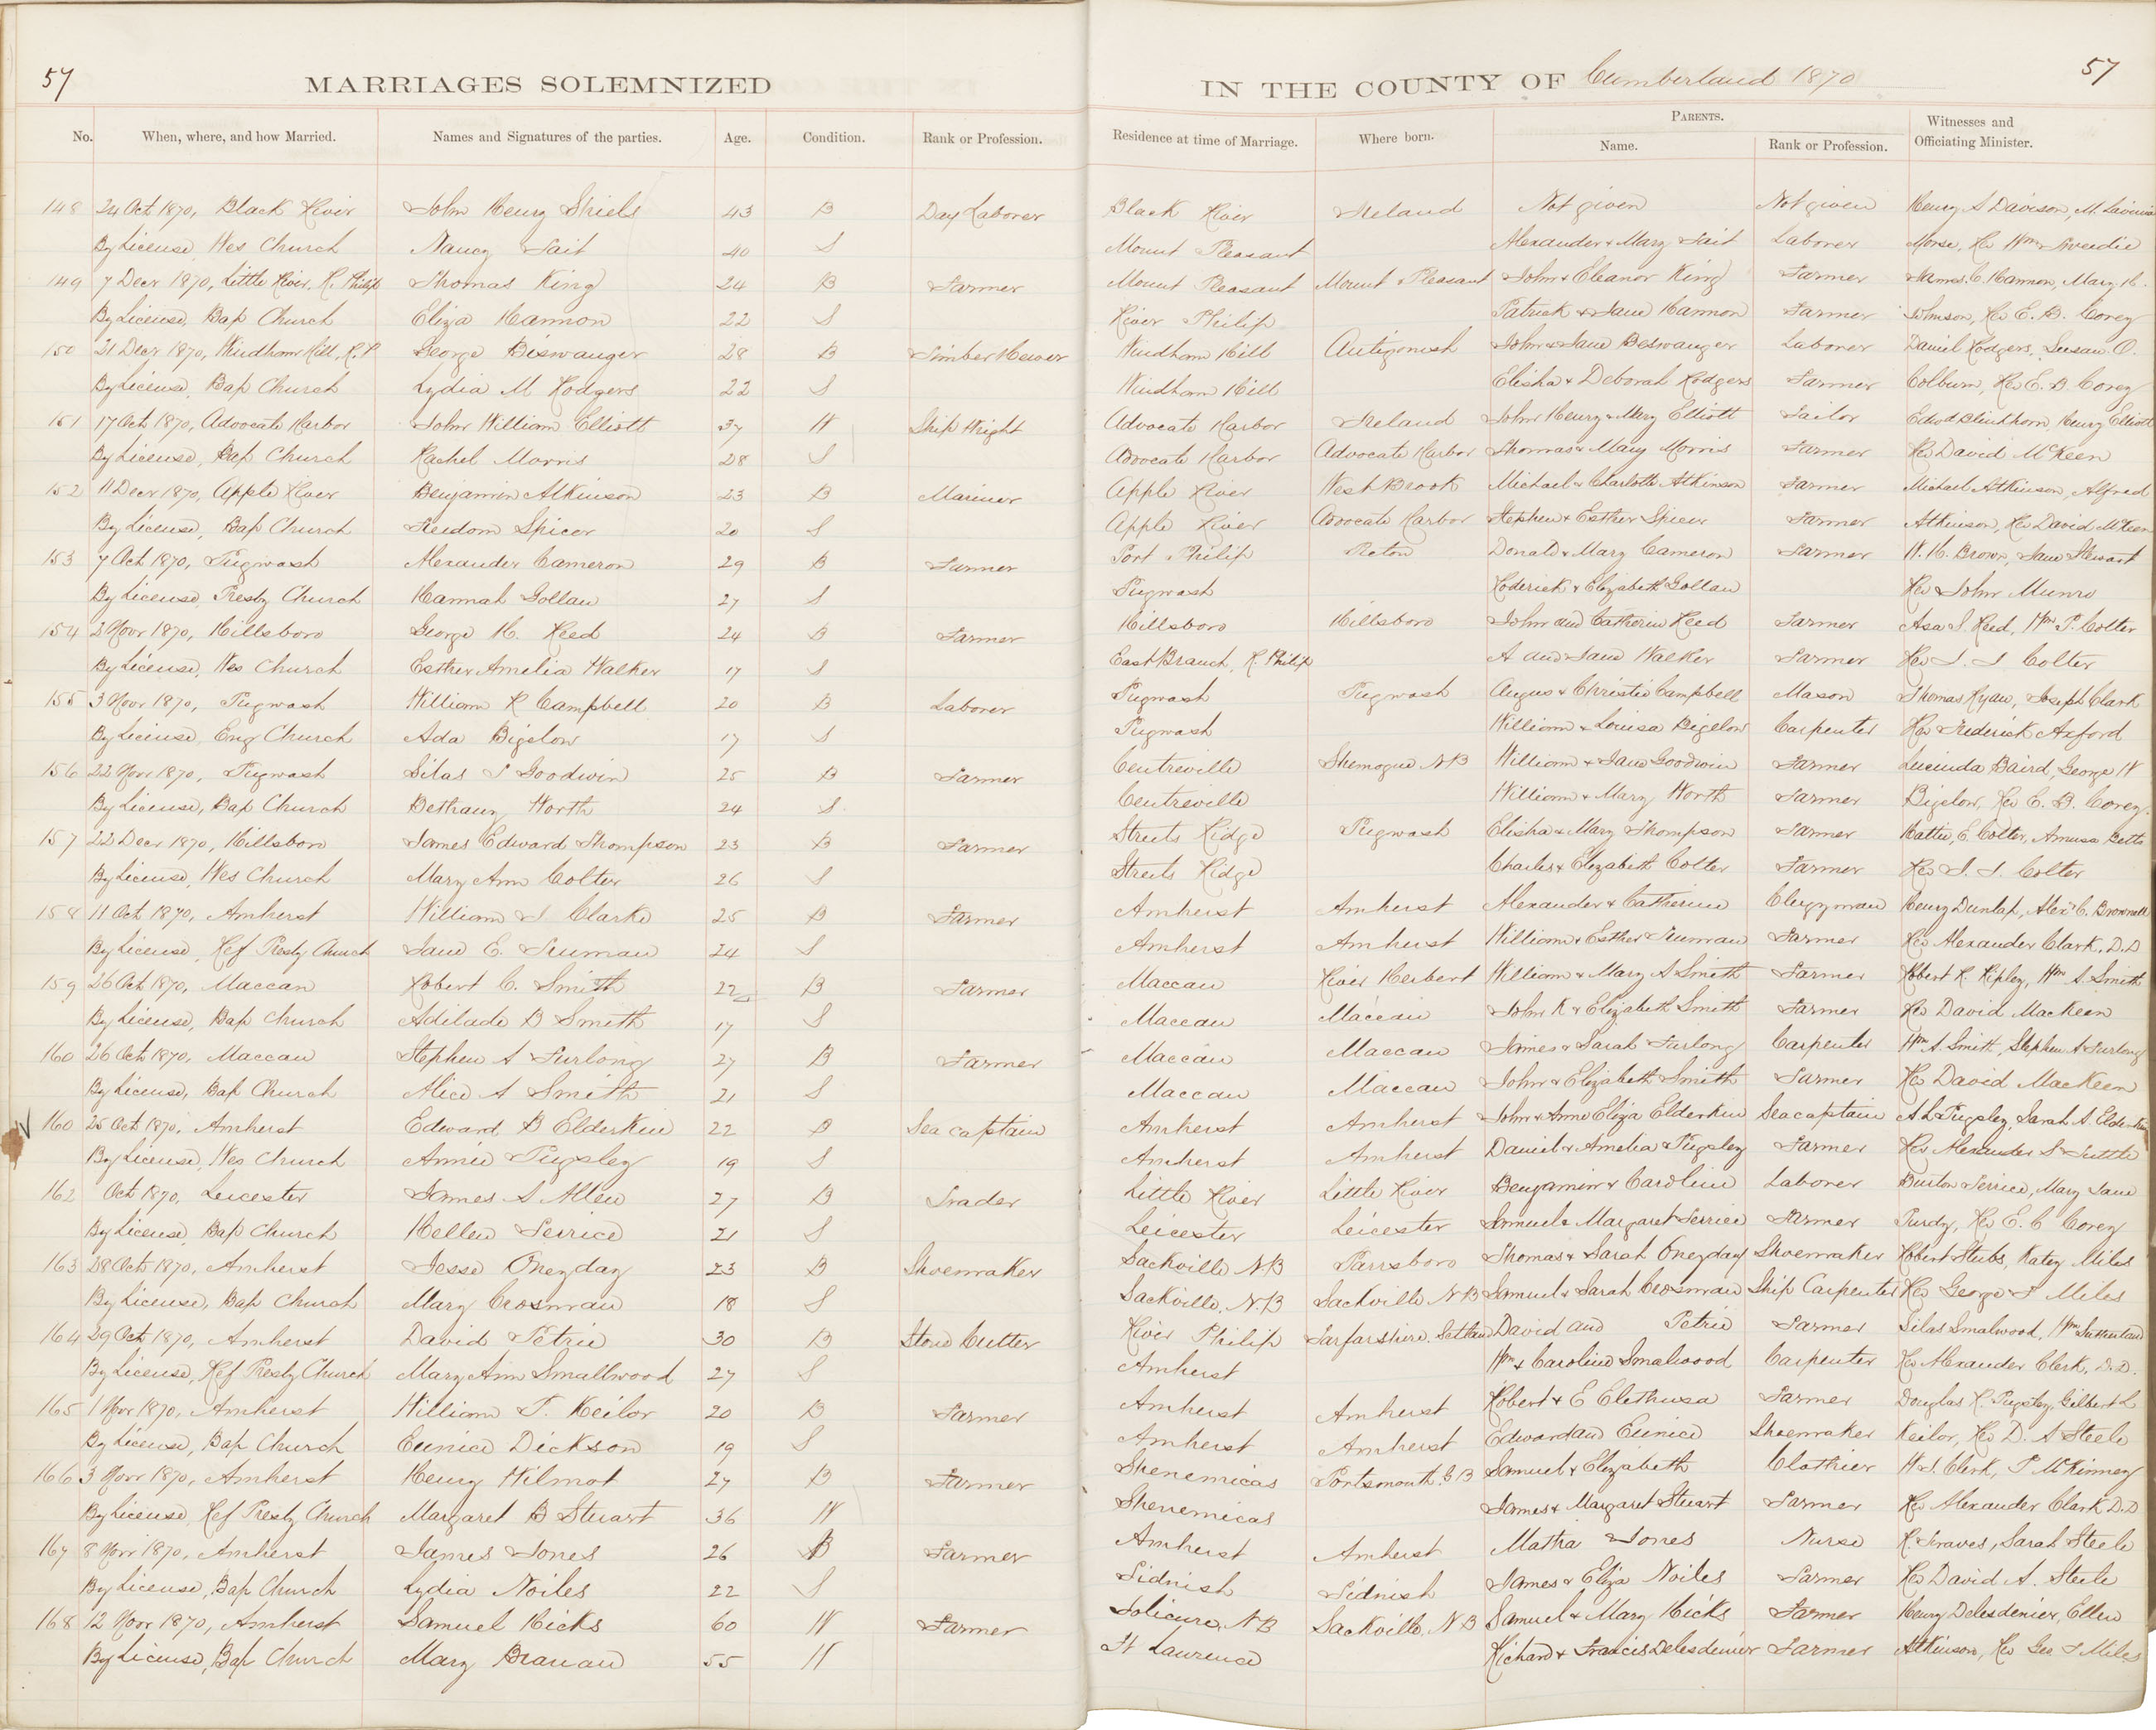 57
MARRIAGES SOLEMNIZED
IN THE COUNTY OF Cumberland 1870
57
No. When, where, and how Married. Names and Signatures of the parties. Age. Condition. Rank or Profession. Residence at time of Marriage. Where born. PARENTS. Name. Rank or Profession. Witnesses and Officiating Minister.
148 24 Oct 1870, Black River John Henry Shiels 43 B Day Laborer Black River Ireland Not given Not given Henry A Davison, M. Lavinia
By License, Wes Church Nancy Tait 40 S Mount Pleasant Alexander & Mary Tait Laborer Morse, Rev Wm Tweedie
149 7 Decr 1870, Little River, R. Philip Thomas King 24 B Farmer Mount Pleasant Mount Pleasant John & Eleanor King Farmer James C. Hannon, Mary H.
By License, Bap Church Eliza Hannon 22 S River Philip Patrick & Jane Hannon Farmer Johnson, Rev E. B. Corey
150 21 Decr 1870, Windham Hill, R. P. George Biswanger 28 B Timber Hewer Windham Hill Antigonish John & Jane Beswanger Laborer Daniel Rodgers, Susan O.
By License, Bap Church Lydia M Rodgers 22 S Windham Hill Elisha & Deborah Rodgers Farmer Colburn, Rev E. B. Corey
151 17 Oct 1870, Advocate Harbor John William Elliott 37 W Ship Wright Advocate Harbor Ireland John Henry & Mary Elliott Sailor Henry Elliott
By License, Bap Church Rachel Morris 28 S Advocate Harbor Advocate Harbor Thomas & Mary Morris Farmer Rev David McKeen
152 11 Decr 1870, Apple River Benjamin Atkinson 23 B Mariner Apple River West Brook Michael & Charlotte Atkinson Farmer Michael Atkinson, Alfred
By License, Bap Church Freedom Spicer 20 S Apple River Advocate Harbor Stephen & Esther Spicer Farmer Atkinson, Rev David McKeen
153 7 Oct 1870, Pugwash Alexander Cameron 29 B Farmer Port Philip Picton Donald & Mary Cameron Farmer W. H. Brown, Jane Stewart
By License, Presby Church Hannah Gollan 27 S Pugwash Roderick & Elizabeth Gollan Rev John Munro
154 2 Novr 1870, Hillsboro George H. Reed 24 B Farmer Hillsboro Hillsboro John and Catherine Reed Farmer Asa S. Reed, Wm P. Colter
By License, Wes Church Esther Amelia Walker 17 S East Branch, R. Philip A and Jane Walker Farmer Rev J. J. Colter
155 3 Novr 1870, Pugwash William R Campbell 20 B Laborer Pugwash Pugwash Angus & Christie Campbell Mason Thomas Ryan, Joseph Clark
By License, Eng Church Ada Bigelow 17 S Pugwash William & Louisa Bigelow Carpenter Rev Frederick Axford
156 22 Novr 1870, Pugwash Silas J Goodwin 25 B Farmer Centreville Shemogue NB William & Jane Goodwin Farmer Lucinda Baird, George W
By License, Bap Church Bethany Worth 24 S Centreville William & Mary Worth Farmer Bigelow, Rev E. B. Corey.
157 22 Decr 1870, Hillsboro James Edward Thompson 23 B Farmer Streets Ridge Pugwash Elisha & Mary Thompson Farmer Hattie, E. Colter, Amasa Betts
By License, Wes Church Mary Ann Colter 26 S Streets Ridge Charles & Elizabeth Colter Farmer Rev J. J. Colter
158 11 Oct 1870, Amherst William J Clarke 25 B Farmer Amherst Amherst Alexander & Catherine Clergyman Henry Dunlap, Alexr C. Brownell
By License, Ref Presby Church Jane E. Truman 24 S Amherst Amherst William & Esther Truman Farmer Rev Alexander Clark, D.D
159 26 Oct 1870, Maccan Robert C. Smith 22 B Farmer Maccan River Herbert William & Mary A Smith Farmer Robert R. Ripley, Wm A. Smith
By License, Bap Church Adilade B Smith 17 S Maccan Maccan John K & Elizabeth Smith Farmer Rev David MacKeen
160 26 Oct 1870, Maccan Stephen A Furlong 27 B Farmer Maccan Maccan James & Sarah Furlong Carpenter Wm A. Smith, Stephen A Furlong
By License, Bap Church Alice A Smith 21 S Maccan Maccan John & Elizabeth Smith Farmer Rev David MacKeen
160 25 Oct 1870, Amherst Edward B Elderkin 22 B Sea captain Amherst Amherst John & Anne Eliza Elderkin Sea captain A L Pugsley, Sarah A. Elderkin
By License, Wes Church Annie Pugsley 19 S Amherst Amherst Daniel & Amelia Pugsley Farmer Rev Alexander S Tuttle
162 Oct 1870, Leicester James S Allen 27 B Trader Little River Little River Benjamin & Caroline Laborer Burton Terrice, Mary Jane
By License, Bap Church Hellen Terrice 21 S Leicester Leicester Samuel & Margaret Terrice Farmer Purdy, Rev E. C Corey
163 28 Oct 1870, Amherst Jesse Oneyday 23 B Shoemaker Sackville NB Parrsboro Thomas & Sarah Oneyday Shoemaker Robert Stubs, Katey Miles
By License, Bap Church Mary Crosman 18 S Sackville, N.B Sackville NB Samuel & Sarah Crosman Ship Carpenter Rev George F Miles
164 29 Oct 1870, Amherst David Petrie 30 B Stone Cutter River Philip Farfarshire. David and Petrie Farmer Silas Smalwood, Wm Sutherland
By License, Ref Presby Church Mary Ann Smallwood 27 S Amherst Wm & Caroline Smalwood Carpenter Rev Alexander Clerk, D.D.
165 1 Novr 1870, Amherst William T. Keilor 20 B Farmer Amherst Amherst Robert & E Elethusa Farmer Douglas R. Pugsley, Gilbert L
By License, Bap Church Eunice Dickson 19 S Amherst Amherst Edward and Eunice Shoemaker Keilor, Rev D. A Steele
166 3 Novr 1870, Amherst Henry Wilmot 27 B Farmer Shenemicas Portsmouth. G B Samuel & Elizabeth Clothier W S Clerk, P McKinney
By License, Ref Presby Church Margaret B Stuart 36 W Shenemicas James & Margaret Stuart Farmer Rev Alexander Clark D.D
167 8 Novr 1870, Amherst James Jones 26 B Farmer Amherst Amherst Matha Jones Nurse R. Graves, Sarah Steele
By License, Bap Church Lydia Noiles 22 S Tidnish Tidnish James & Eliza Noiles Farmer Rev David A. Steele
168 12 Novr 1870, Amherst Samuel Hicks 60 W Farmer Jolicure, NB Sackville, N B Samuel & Mary Hicks Farmer Henry Delesdenier, Ellen
By License, Bap Church Mary Beanan 55 W St Laurence Richard & Francis Delesdenier Farmer Atkinson, Rev Geo F Miles